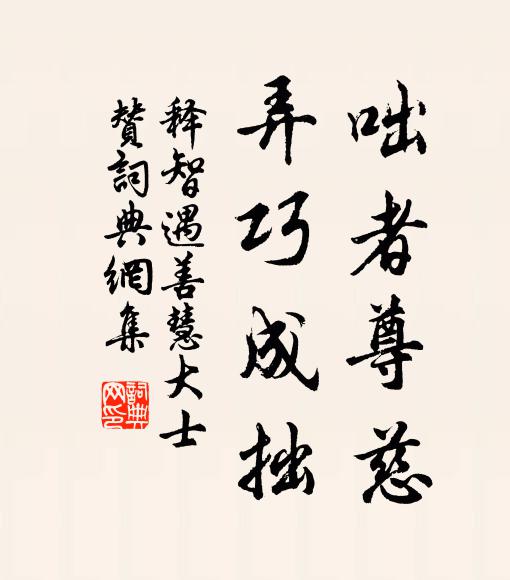 咄者尊慈
弄巧成拙
释智遇善慧大士
赞詞典網集
詞典
网印